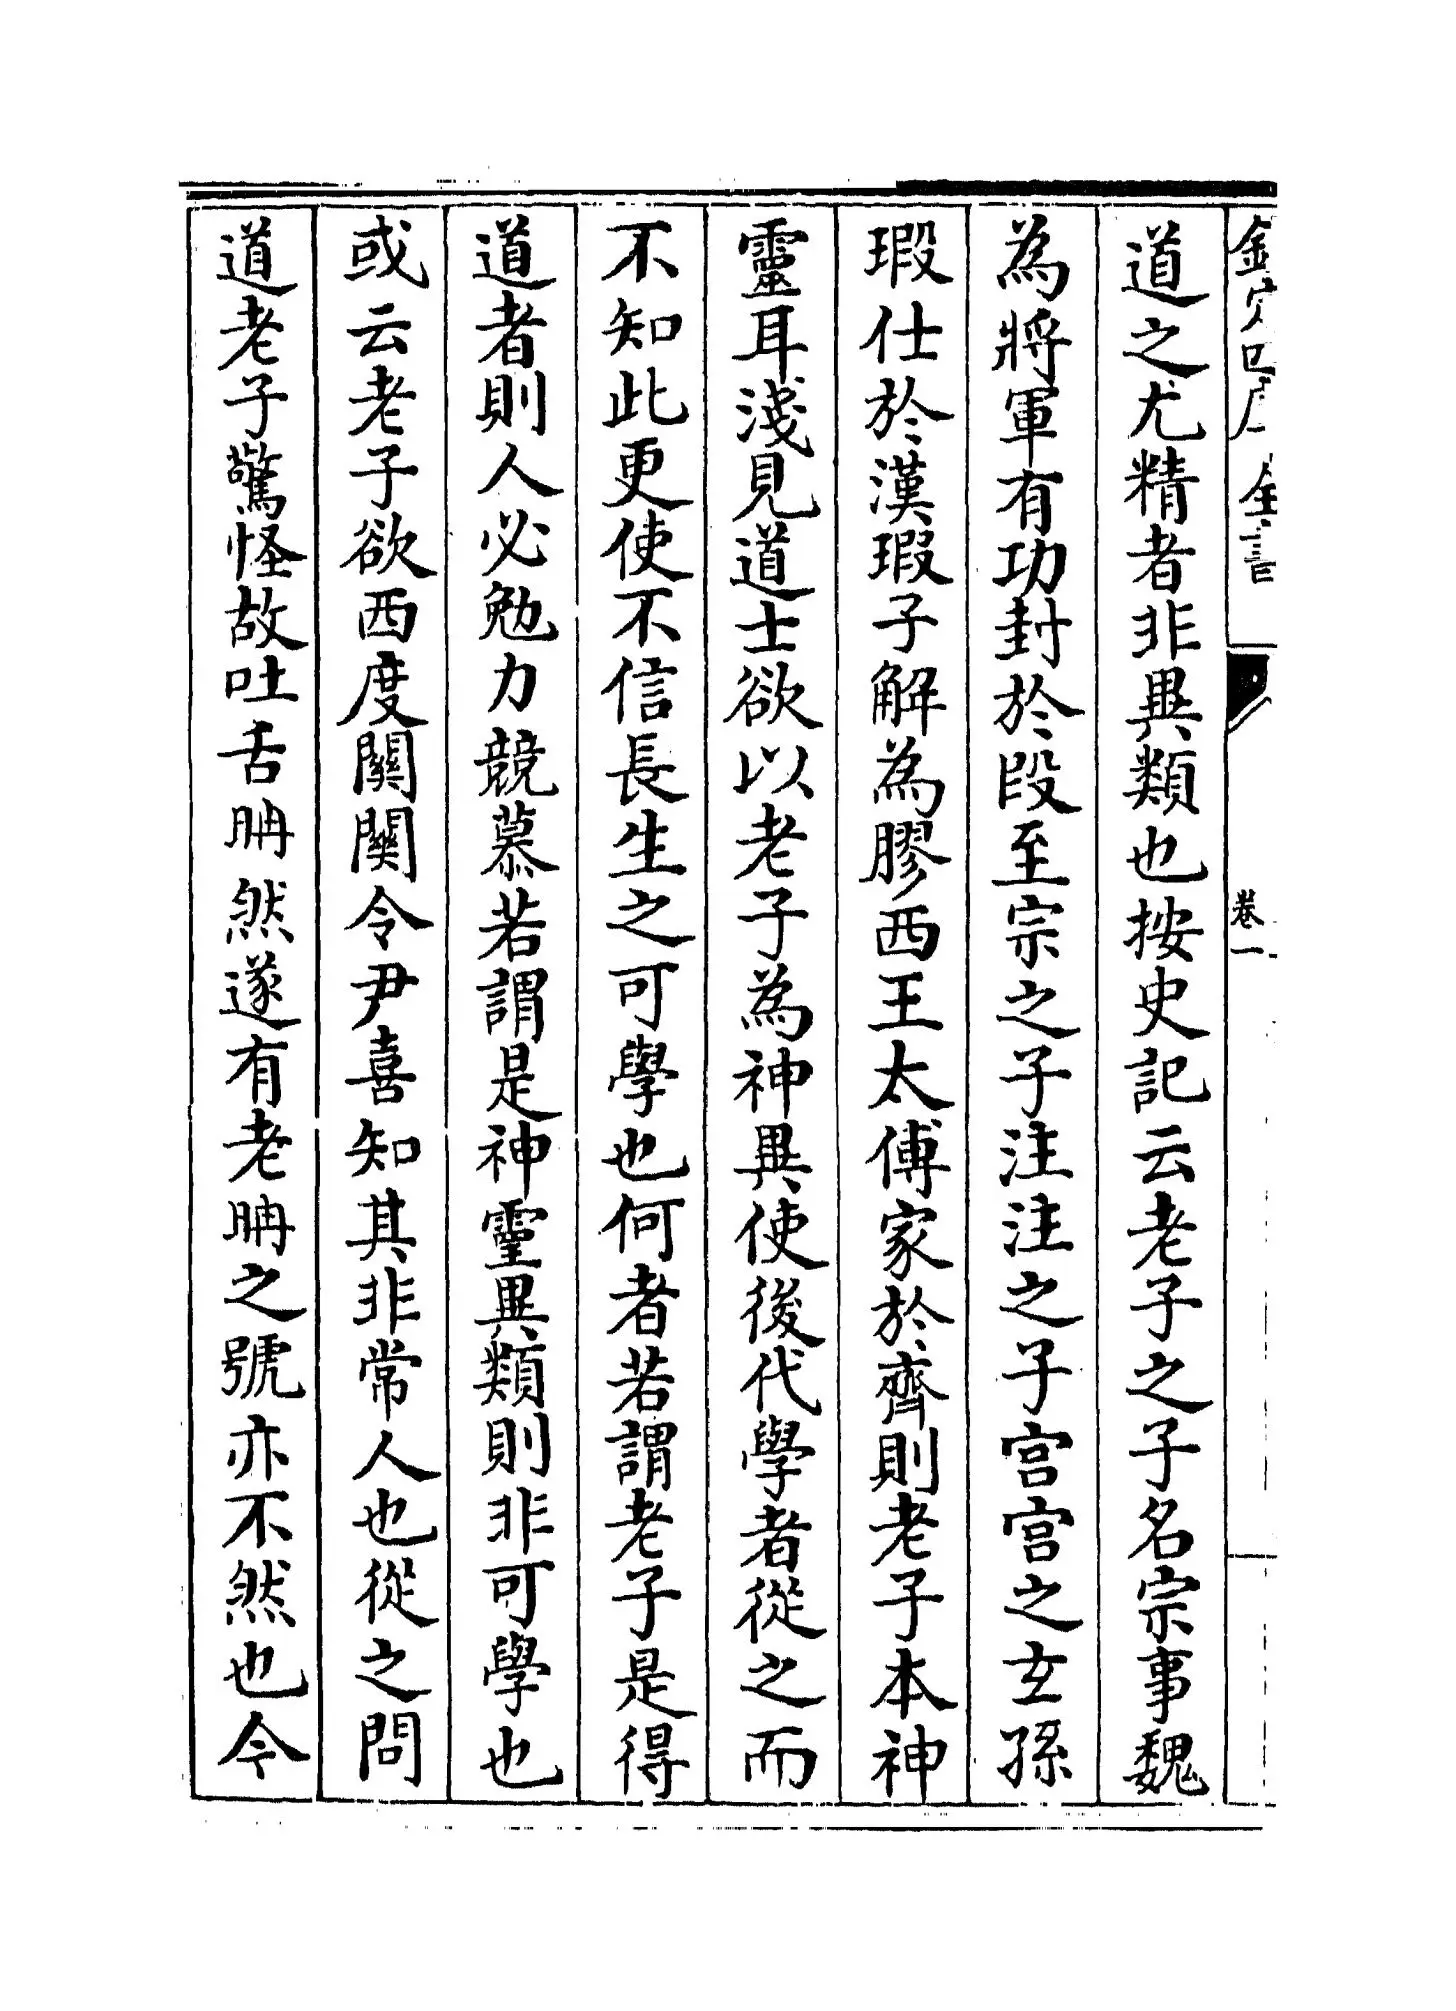 欽定四庫全書
卷一
道之尤精者非異類也按史記云老子之子名宗事魏
為將軍有功封於段至宗之子注注之子宫宫之玄孫
瑕仕於漢瑕子解為膠西王太傅家於齊則老子本神
靈耳淺見道士欲以老子為神異使後代學者從之而
不知此更使不信長生之可學也何者若謂老子是得
道者則人必勉力競慕若謂是神靈異類則非可學也
或云老子欲西度關關令尹喜知其非常人也從之問
道老子驚怪故吐舌聃然遂有老聃之號亦不然也今